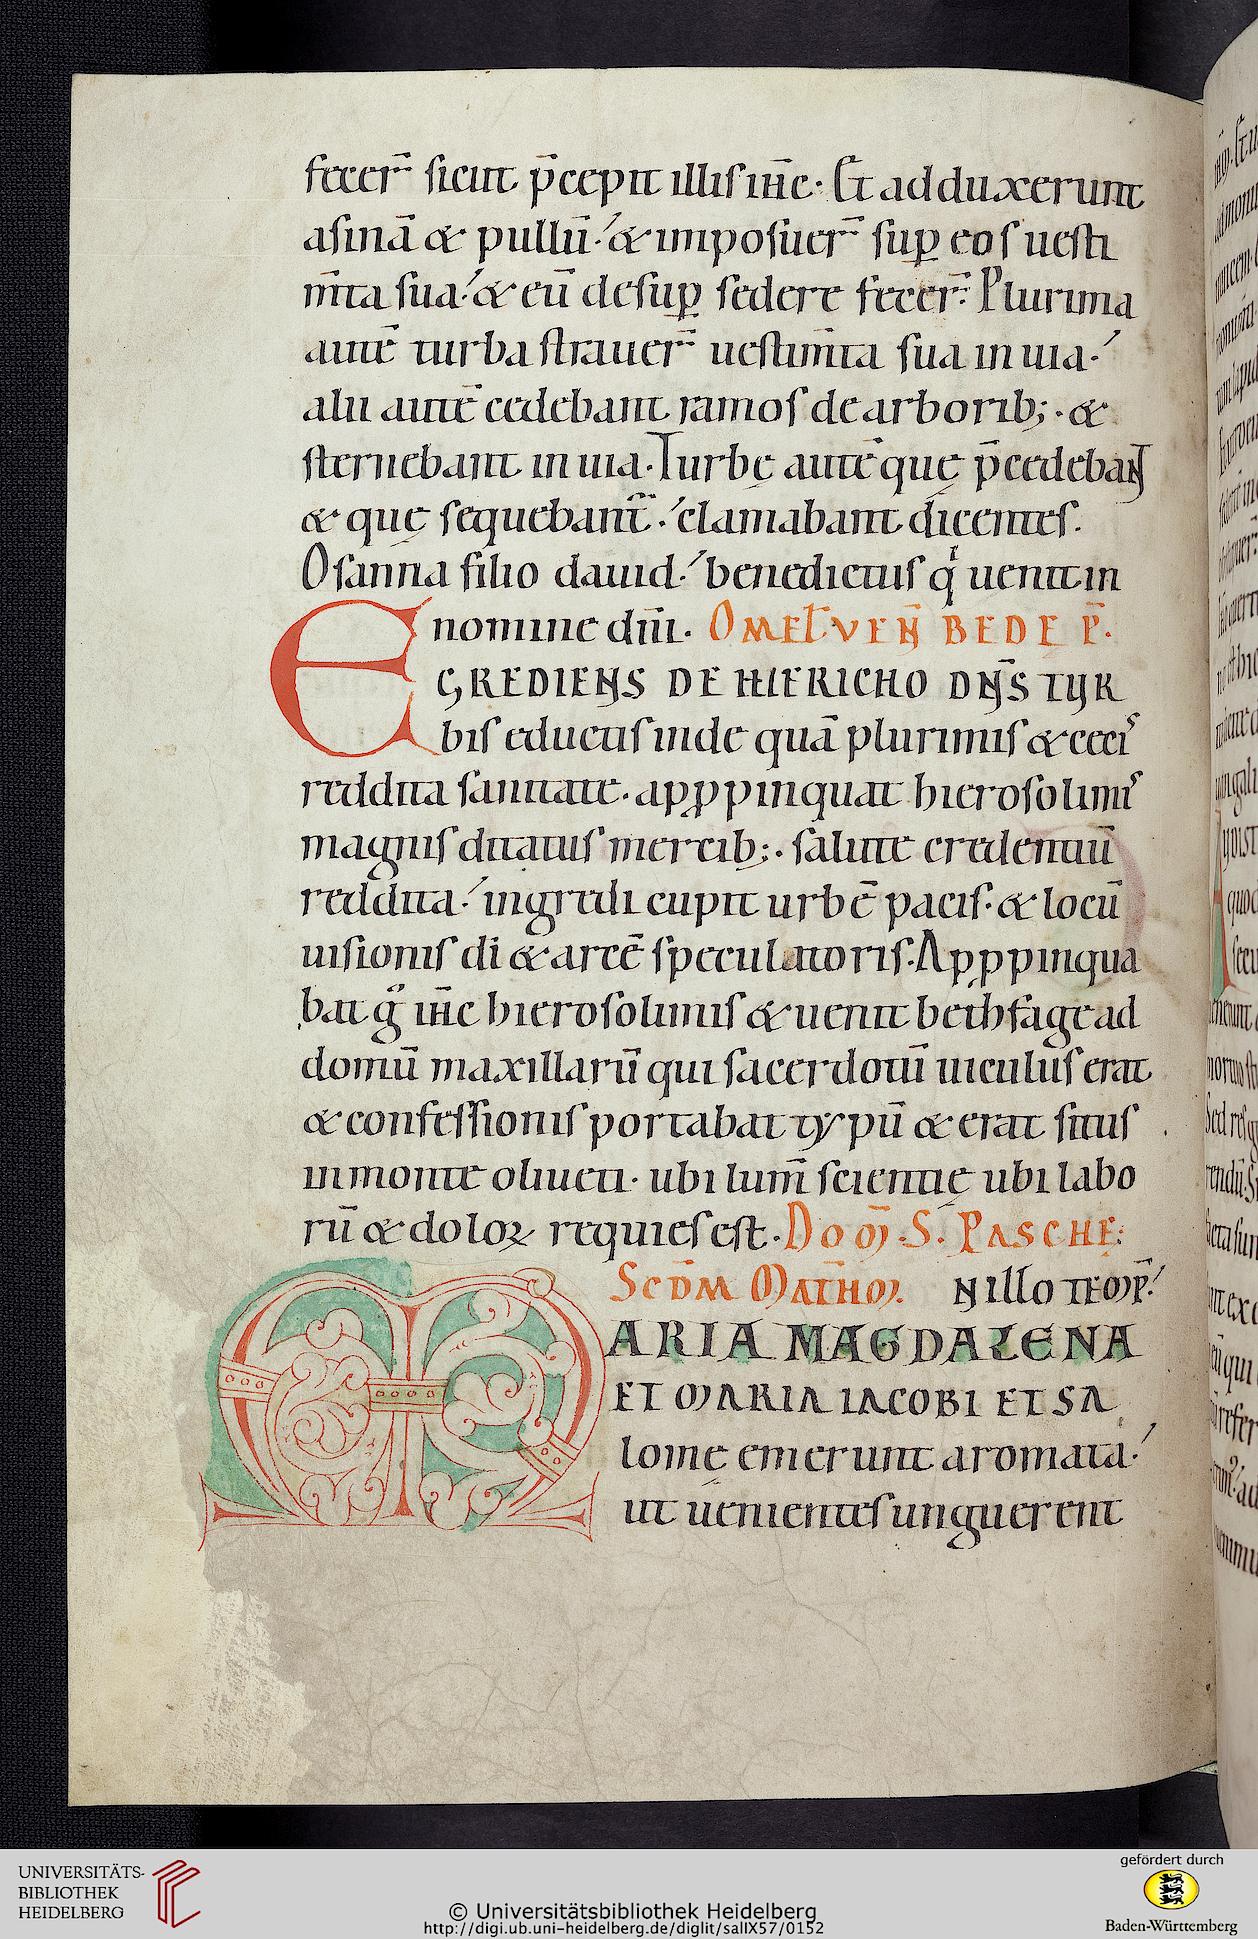 fecer̄ sicut p̄cepit illis ih̄c. Et adduxerunt
asinā & pullū. & imposuer̄ sup̱ eos uesti
m̄ta sua. & eū desup̱ sedere fecer̄. Plurima
autē turba strauer̄ uestim̄ta sua in uia.
alii autē cedebant ramos de arborib; . &
sternebant in uia. Turbę autē quę p̄cedebant
& quę sequebant̄. clamabant dicentes.
Osanna filio dauid. benedictus qͥ uenit in
nomine dn̄i. OMEL VEN̄ BEDE P̄.
EGREDIENS DE HIERICHO DN̄S TUR
bis eductis inde quā plurimis & cecis
reddita sanitate. apꝓpinquat hierosolimis
magnis ditatus mercib; . salute credentiū
reddita. ingredi cupit urbē pacis. & locū
uisionis di̅ & arcē speculatoris. Apꝓpinqua
bat gͦ ih̄c hierosolimis & uenit bethfage ad
domū maxillarū qui sacerdotū uiculus erat
& confessionis portabat typū & erat situs
in monte oliueti. ubi lum̄ scientię ubi labo
rū & doloꝝ requies est. DOM̄. S. PASCHE:
SCD̄M MATHM. N illo TEMP̄.
MARIA MAGDALENA
ET MARIA IACOBI ET SA
lomę emerunt aromata.
ut uenientes unguerent
UNIVERSITÄTS-
BIBLIOTHEK
HEIDELBERG
© Universitätsbibliothek Heidelberg
http://digi.ub.uni-heidelberg.de/diglit/salIX57/0152
gefördert durch
Baden-Württemberg